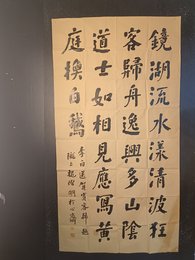 鏡湖流水漾清波狂
客歸舟逸興多山陰
道士如相見應寫黄
庭換白鵝
李白送賀賓客歸越